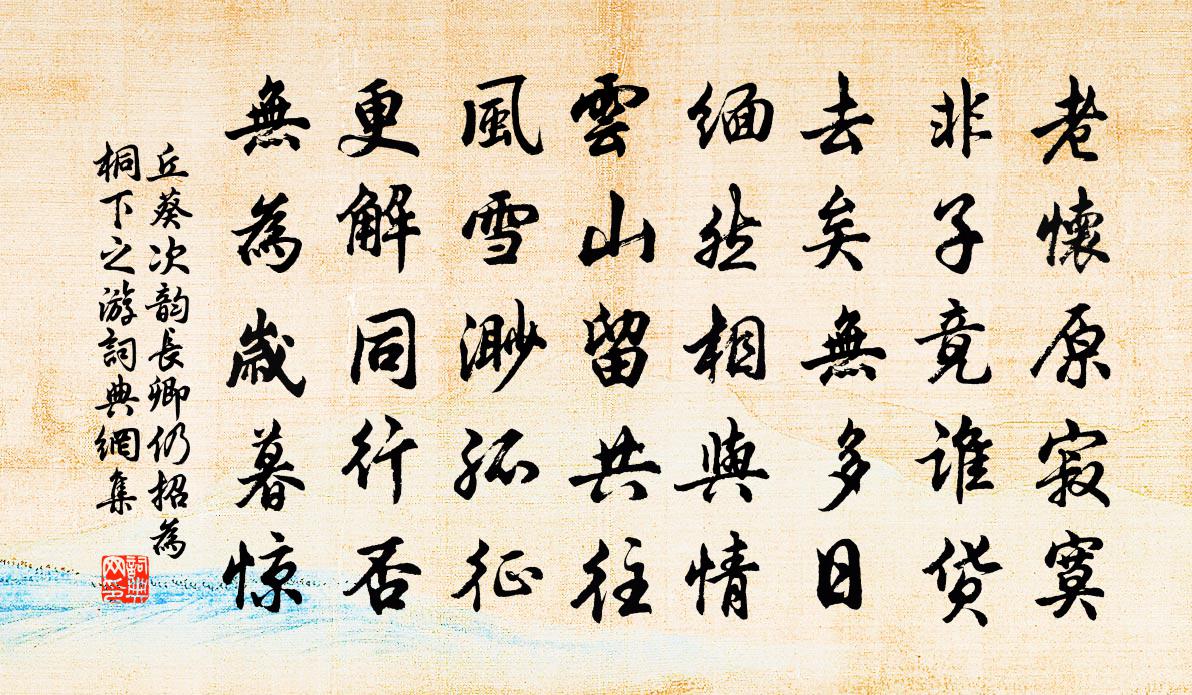 老懷原寂寞
非子竟誰貨
去矣無多日
緬然相與情
雲山留共往
風雪渺孤征
更解同行否
無為歲暮惊
丘葵次韵長卿仍招為
桐下之游詞典網集